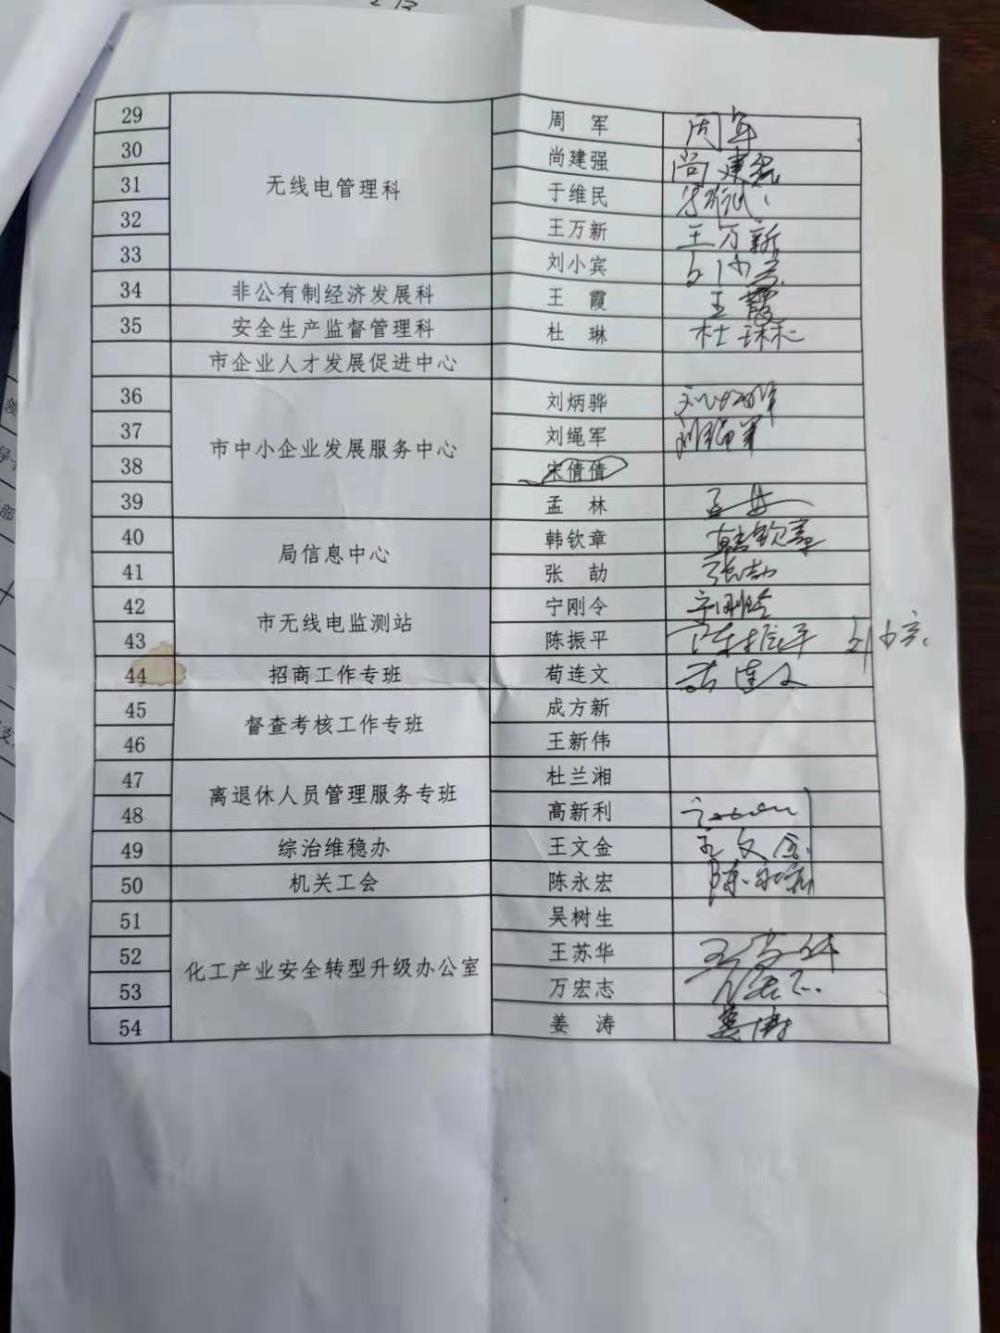 29 无线电管理科 周军 周军
30 尚建强 尚建强
31 于维民
32 王万新 王万新
33 刘小宾 刘小宾
34 非公有制经济发展科 王霞 王霞
35 安全生产监督管理科 杜琳 杜琳
市企业人才发展促进中心
36 市中小企业发展服务中心 刘炳骅 刘炳骅
37 刘绳军 刘绳军
38 宋倩倩
39 孟林 孟林
40 局信息中心 韩钦章 韩钦章
41 张劼 张劼
42 市无线电监测站 宁刚令 宁刚令
43 陈振平 陈振平
44 招商工作专班 荀连文 荀连文
45 督查考核工作专班 成方新
46 王新伟
47 离退休人员管理服务专班 杜兰湘
48 高新利
49 综治维稳办 王文金 王文金
50 机关工会 陈永宏 陈永宏
51 化工产业安全转型升级办公室 吴树生
52 王苏华 王苏华
53 万宏志 万宏志
54 姜涛 姜涛